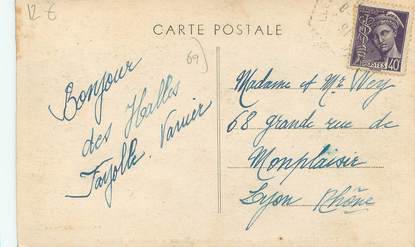 12 €
CARTE POSTALE
69)
POSTES 40
Bonjour
des Halles
Fayolle. Varnier
Madame et Mr Wey
68 grande rue de
Monplaisir
Lyon Rhône